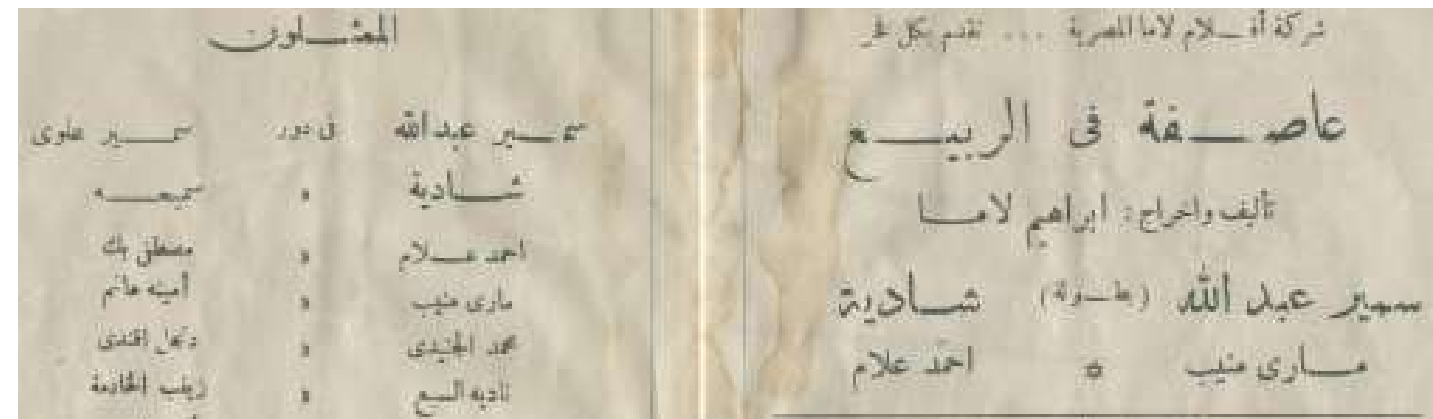 شركة أفـــلام لاما المصرية ... تقدم بكل فخر
عاصـــفة فى الربيـــع
تأليف واخراج : ابراهيم لامـــا
سمير عبد الله (بطـولة) شـــادية
مـــارى منيب ٥ احمد علام
الممثـــلون
سمـــير عبد الله فى دور سمـــير علوى
شـــادية » سميحـــه
احمد عـــلام » مصطفى بك
مارى منيب » أمينه هانم
محمد الجنيدى » افندى
ناديه السبع » زينب الخادمة